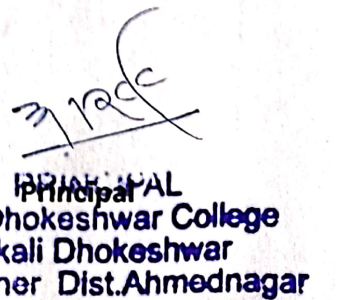 PRINCIPAL
Principal
Dhokeshwar College
kali Dhokeshwar
ner Dist.Ahmednagar